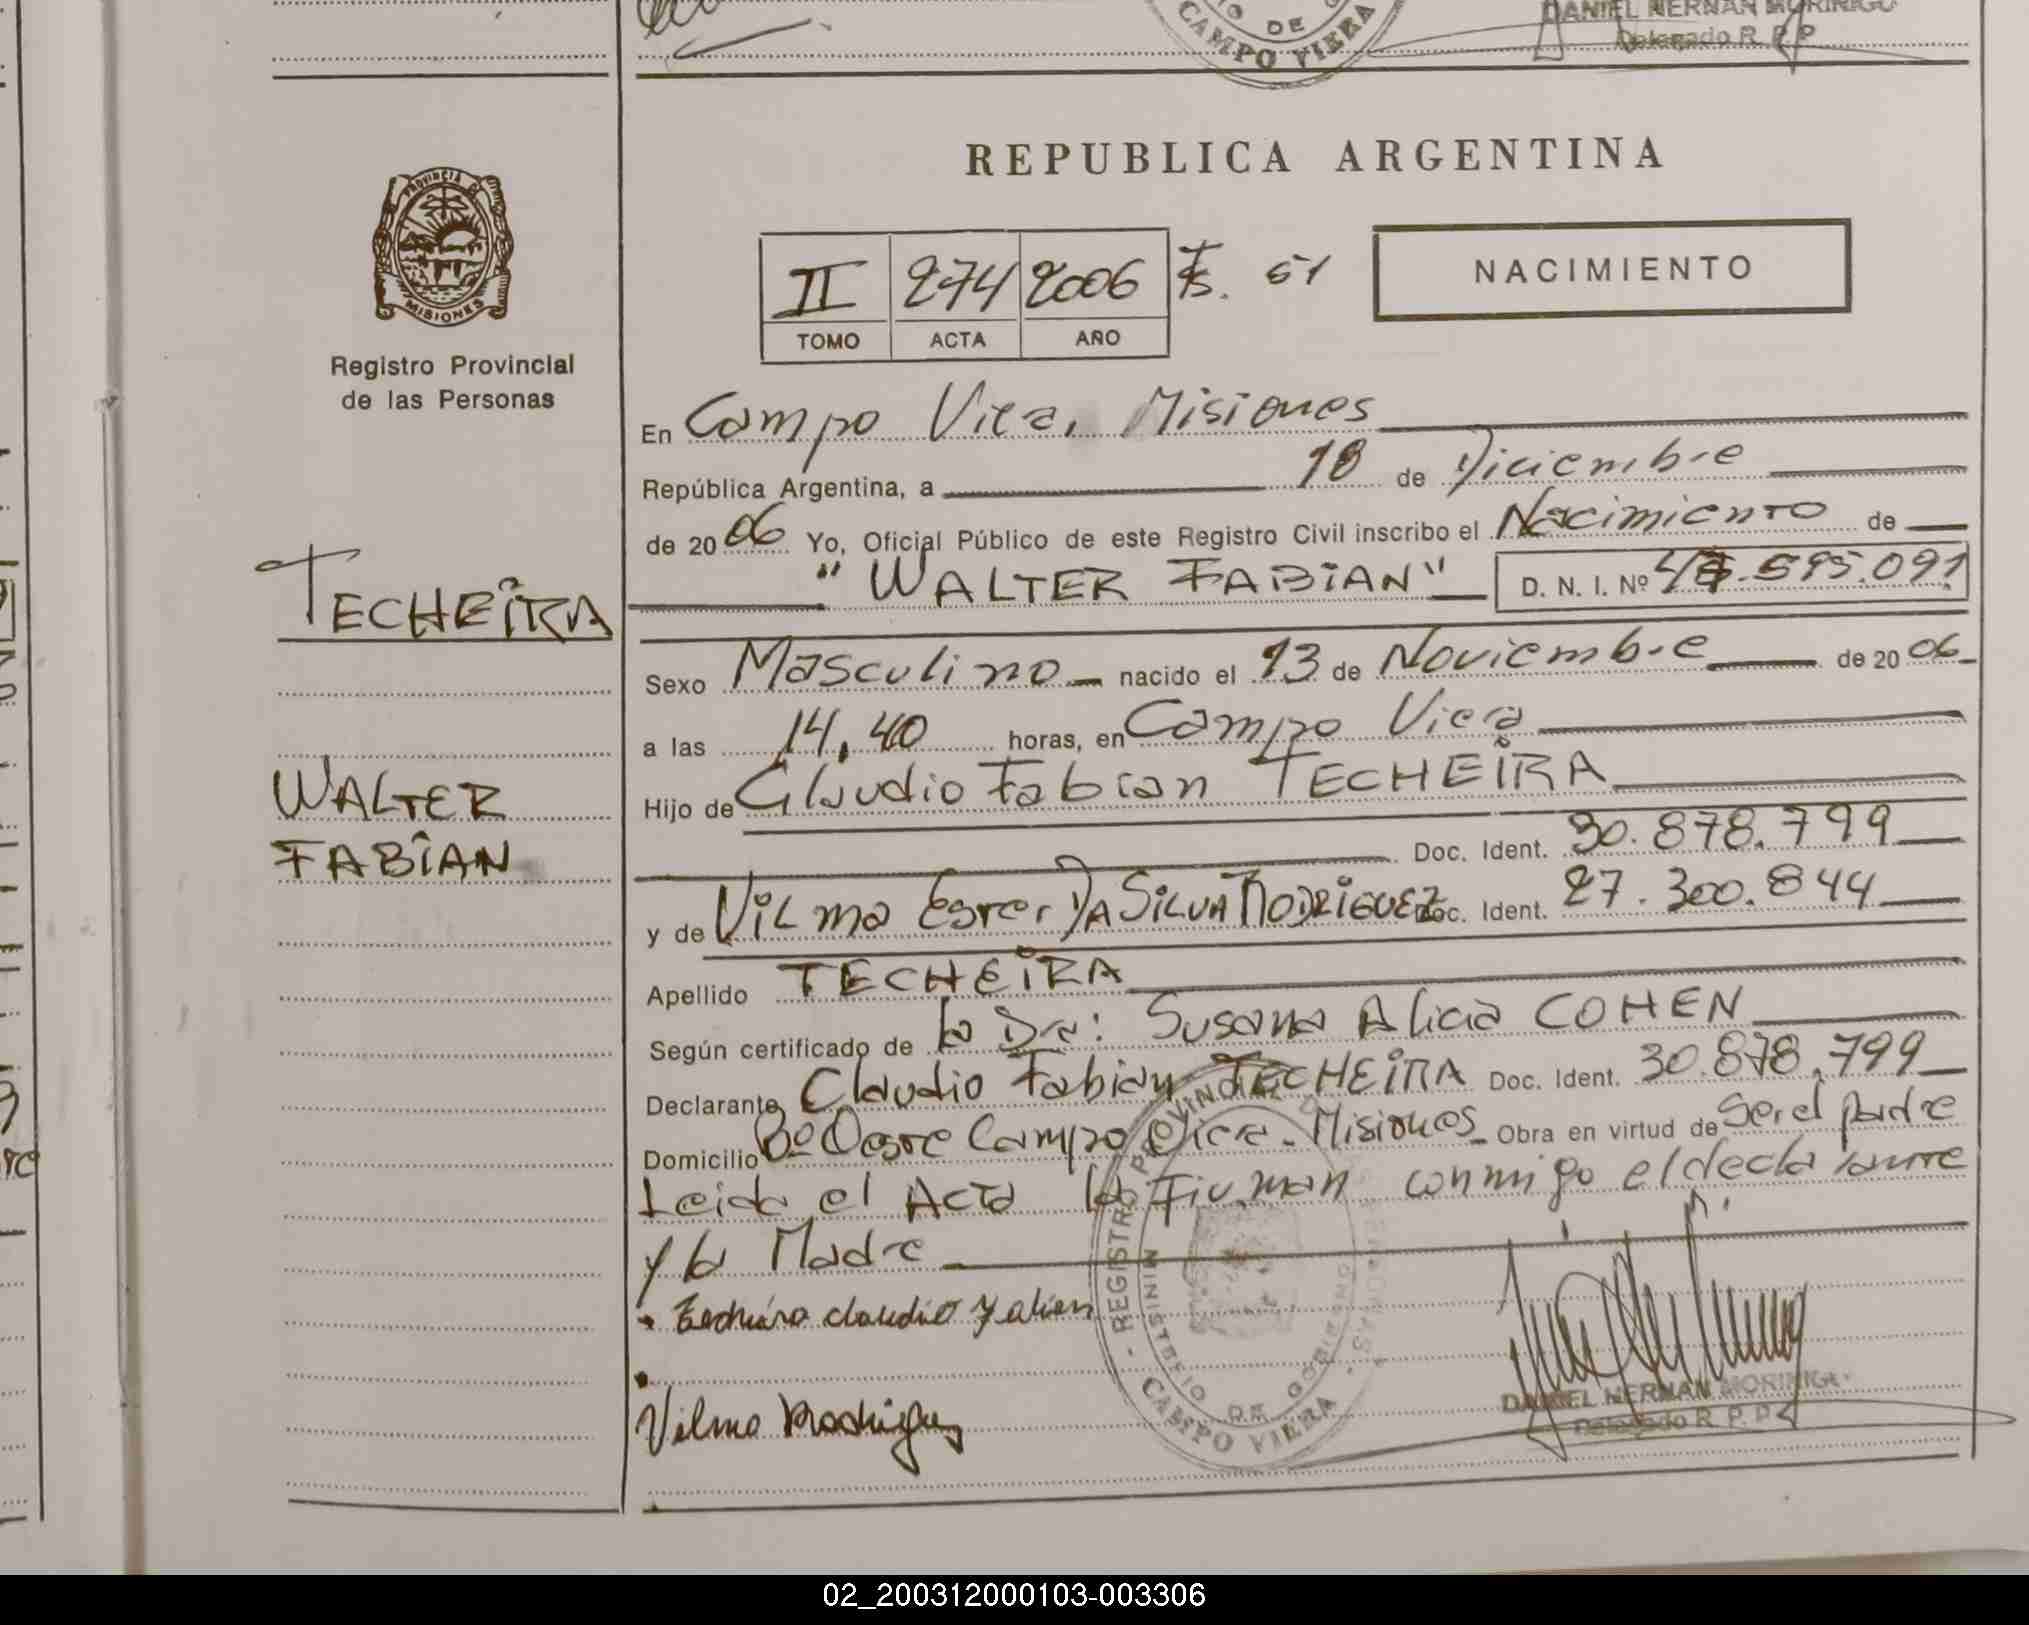 CAMPO VIERA
DANIEL HERNAN MORINIGO
Delegado R. P. P
REPUBLICA ARGENTINA
PROVINCIA DE
MISIONES
Registro Provincial
de las Personas
II 274 2006 Fs. 51
TOMO ACTA AÑO
NACIMIENTO
En Campo Viera, Misiones
República Argentina, a 18 de Diciembre
de 2006 Yo, Oficial Público de este Registro Civil inscribo el Nacimiento de
"WALTER FABIAN" D. N. I. Nº 595.091
TECHEIRA
Sexo Masculino nacido el 13 de Noviembre de 2006
a las 14,40 horas, en Campo Viera
Hijo de Claudio Fabian TECHEIRA
WALTER
FABIAN
Doc. Ident. 30.878.799
y de Vilma Ester DA SILVA RODRIGUEZ Doc. Ident. 27.300.844
Apellido TECHEIRA
Según certificado de la Dra: Susana Alicia COHEN
Declarante Claudio Fabian TECHEIRA Doc. Ident. 30.878.799
Domicilio Bº Oeste Campo Viera - Misiones Obra en virtud de Ser el padre
Leida el Acta la Firman conmigo el declarante
y la Madre
Techeira Claudio Fabian
Vilma Rodriguez
REGISTRO PROVINCIAL DE LAS PERSONAS
MINISTERIO DE GOBIERNO
CAMPO VIERA
DANIEL HERNAN MORINIGO
Delegado R. P. P
02_200312000103-003306